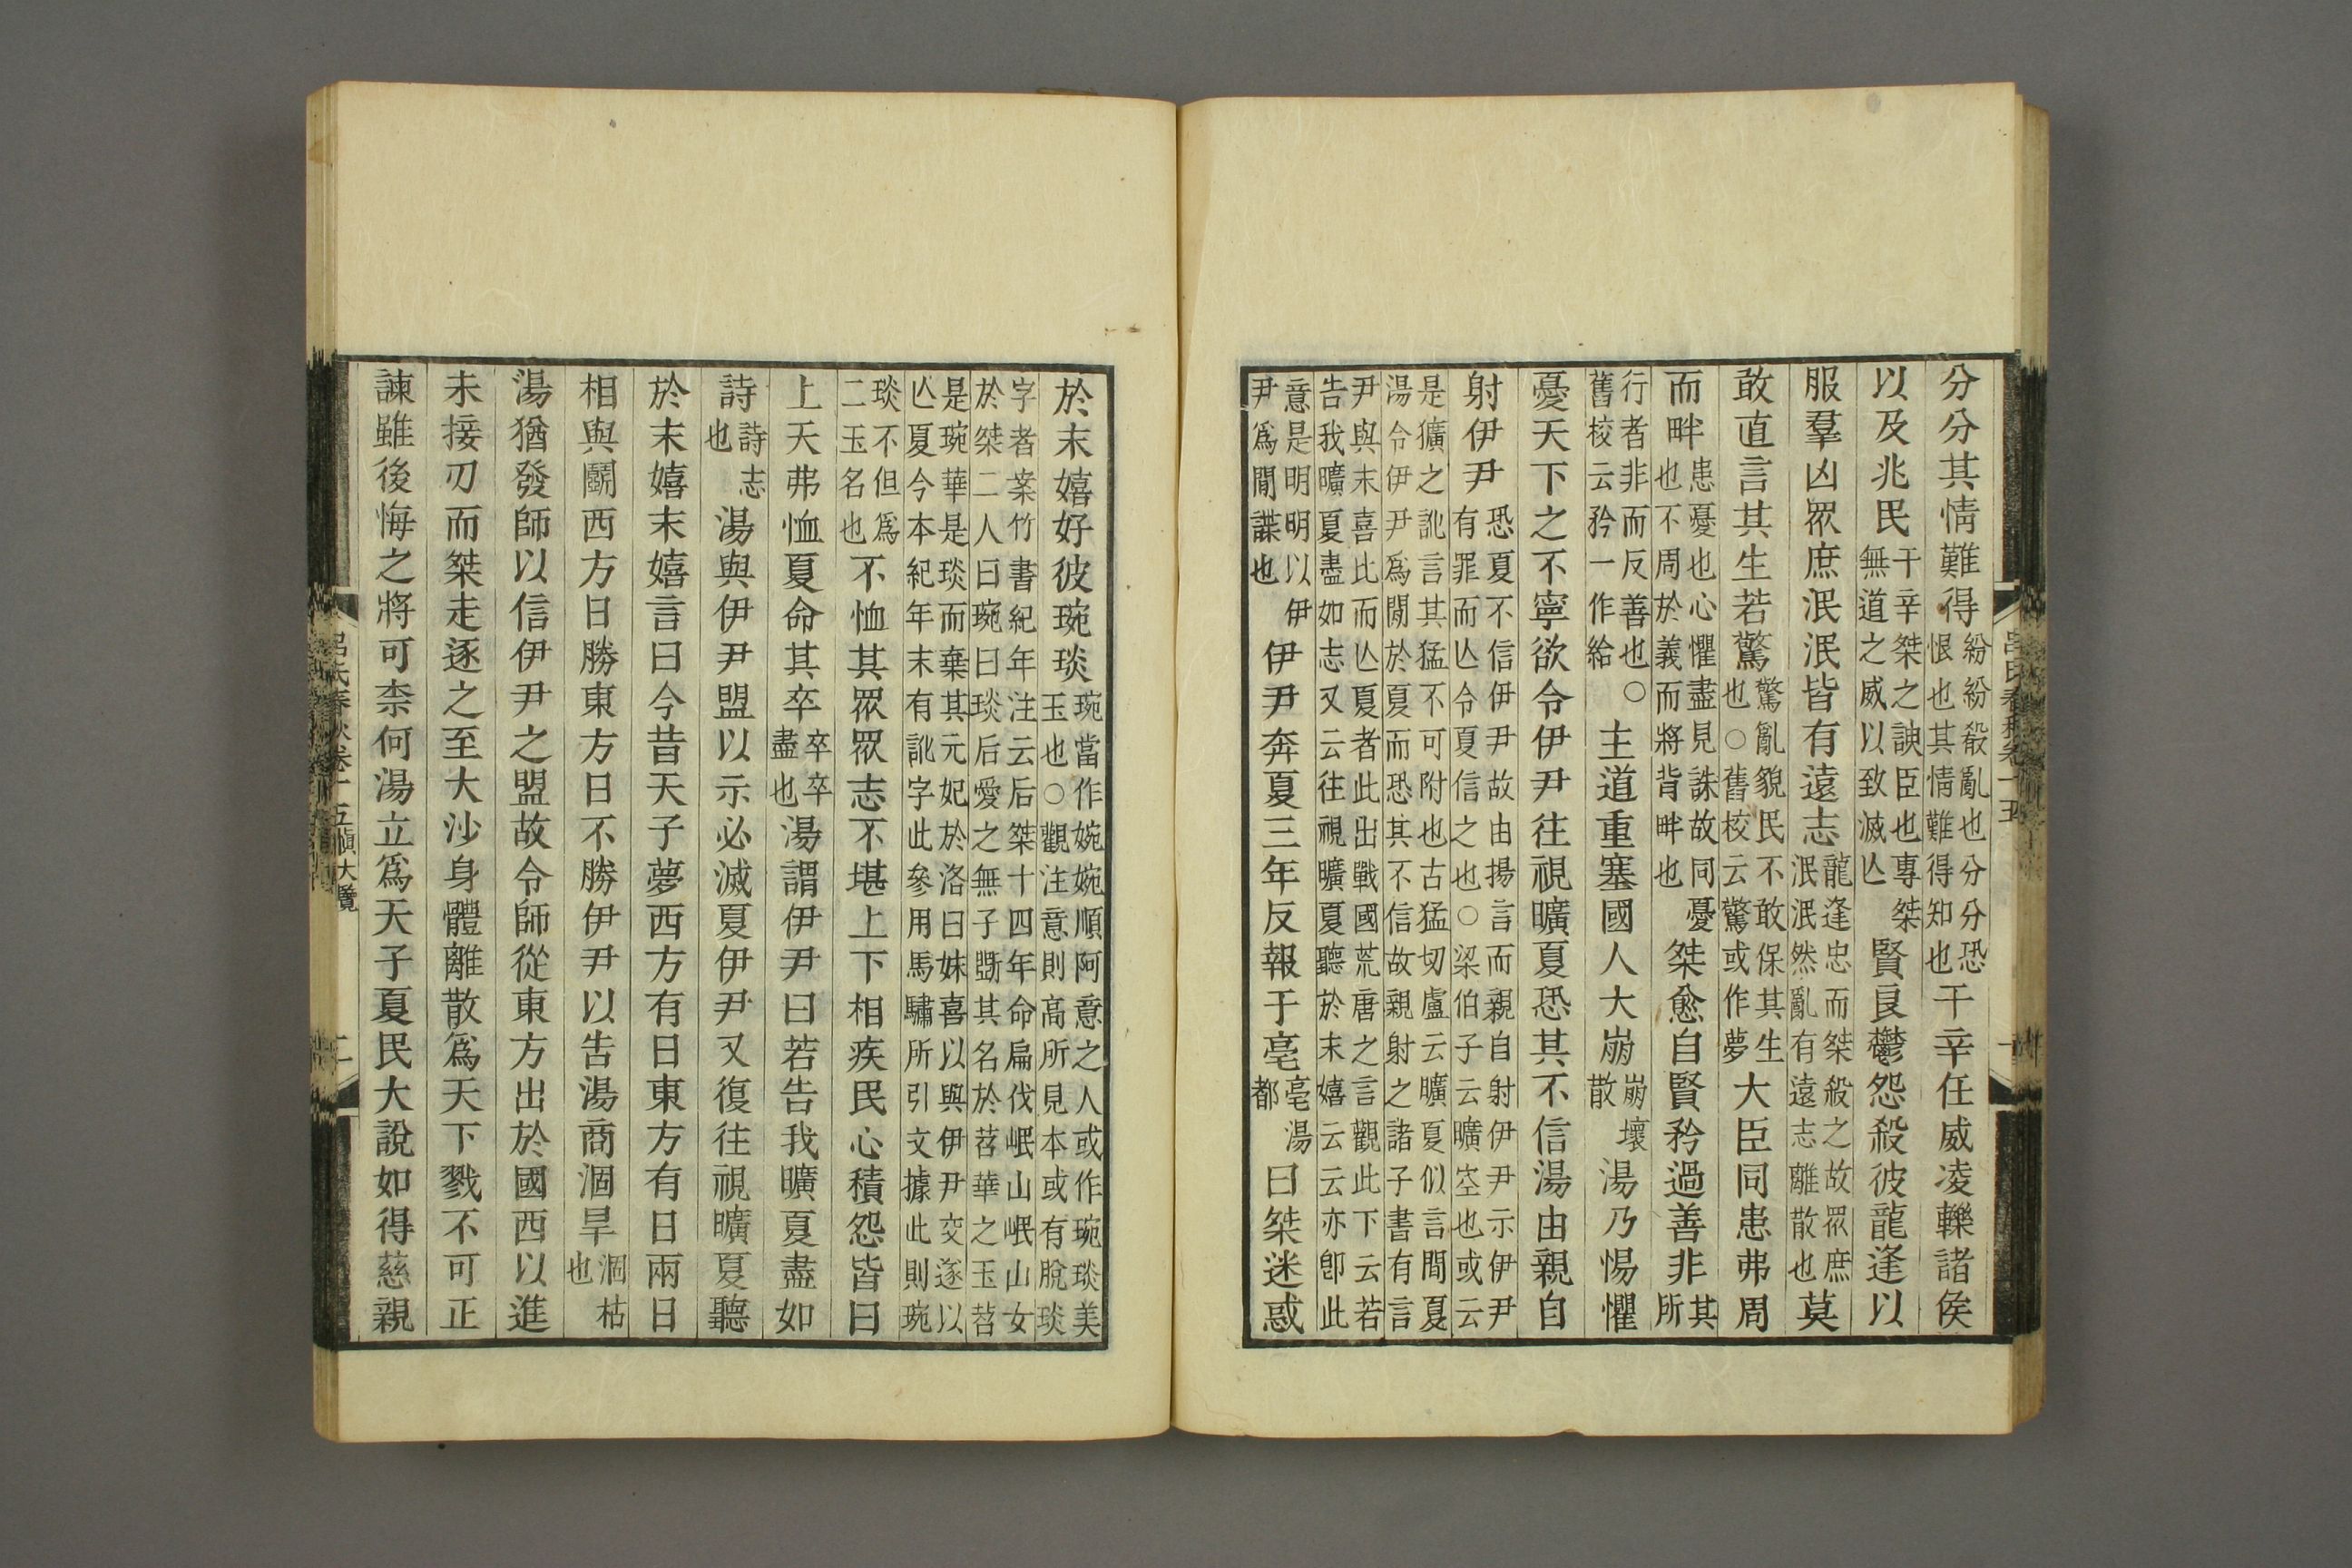 分分其情難得紛紛殽亂也分分恐恨也其情難得知也干辛任威凌轢諸侯
以及兆民干辛桀之諛臣也專桀無道之威以致滅亾賢良鬱怨殺彼龍逢以
服羣凶眾庶泯泯皆有遠志龍逢忠而桀殺之故眾庶泯泯然亂有遠志離散也莫
敢直言其生若驚驚亂貌民不敢保其生也○舊校云驚或作夢大臣同患弗周
而畔患憂也心懼盡見誅故同憂也不周於義而將背畔也桀愈自賢矜過善非其所
行者非而反善也○舊校云矜一作給主道重塞國人大崩崩壞散湯乃惕懼
憂天下之不寧欲令伊尹往視曠夏恐其不信湯由親自
射伊尹恐夏不信伊尹故由揚言而親自射伊尹示伊尹有罪而亾令夏信之也○梁伯子云曠空也或云
是獷之訛言其猛不可附也古猛切盧云曠夏似言閒夏湯令伊尹爲閒於夏而恐其不信故親射之諸子書有言
尹與末喜比而亾夏者此出戰國荒唐之言觀此下云若告我曠夏盡如志又云往視曠夏聽於末嬉云云亦卽此
意是明明以伊尹爲閒諜也伊尹奔夏三年反報于亳亳湯都曰桀迷惑
於末嬉好彼琬琰琬當作婉婉順阿意之人或作琬琰美玉也○觀注意則高所見本或有脫琰
字者案竹書紀年注云后桀十四年命扁伐岷山岷山女於桀二人曰琬曰琰后愛之無子斲其名於苕華之玉苕
是琬華是琰而棄其元妃於洛曰妺喜以與伊尹交遂以亾夏今本紀年末有訛字此參用馬驌所引文據此則琬
琰不但爲二玉名也不恤其眾眾志不堪上下相疾民心積怨皆曰
上天弗恤夏命其卒卒卒盡也湯謂伊尹曰若告我曠夏盡如
詩詩志也湯與伊尹盟以示必滅夏伊尹又復往視曠夏聽
於末嬉末嬉言曰今昔天子夢西方有日東方有日兩日
相與鬭西方日勝東方日不勝伊尹以告湯商涸旱涸枯也
湯猶發師以信伊尹之盟故令師從東方出於國西以進
未接刃而桀走逐之至大沙身體離散爲天下戮不可正
諫雖後悔之將可柰何湯立爲天子夏民大說如得慈親
呂氏春秋卷十五慎大覽
二